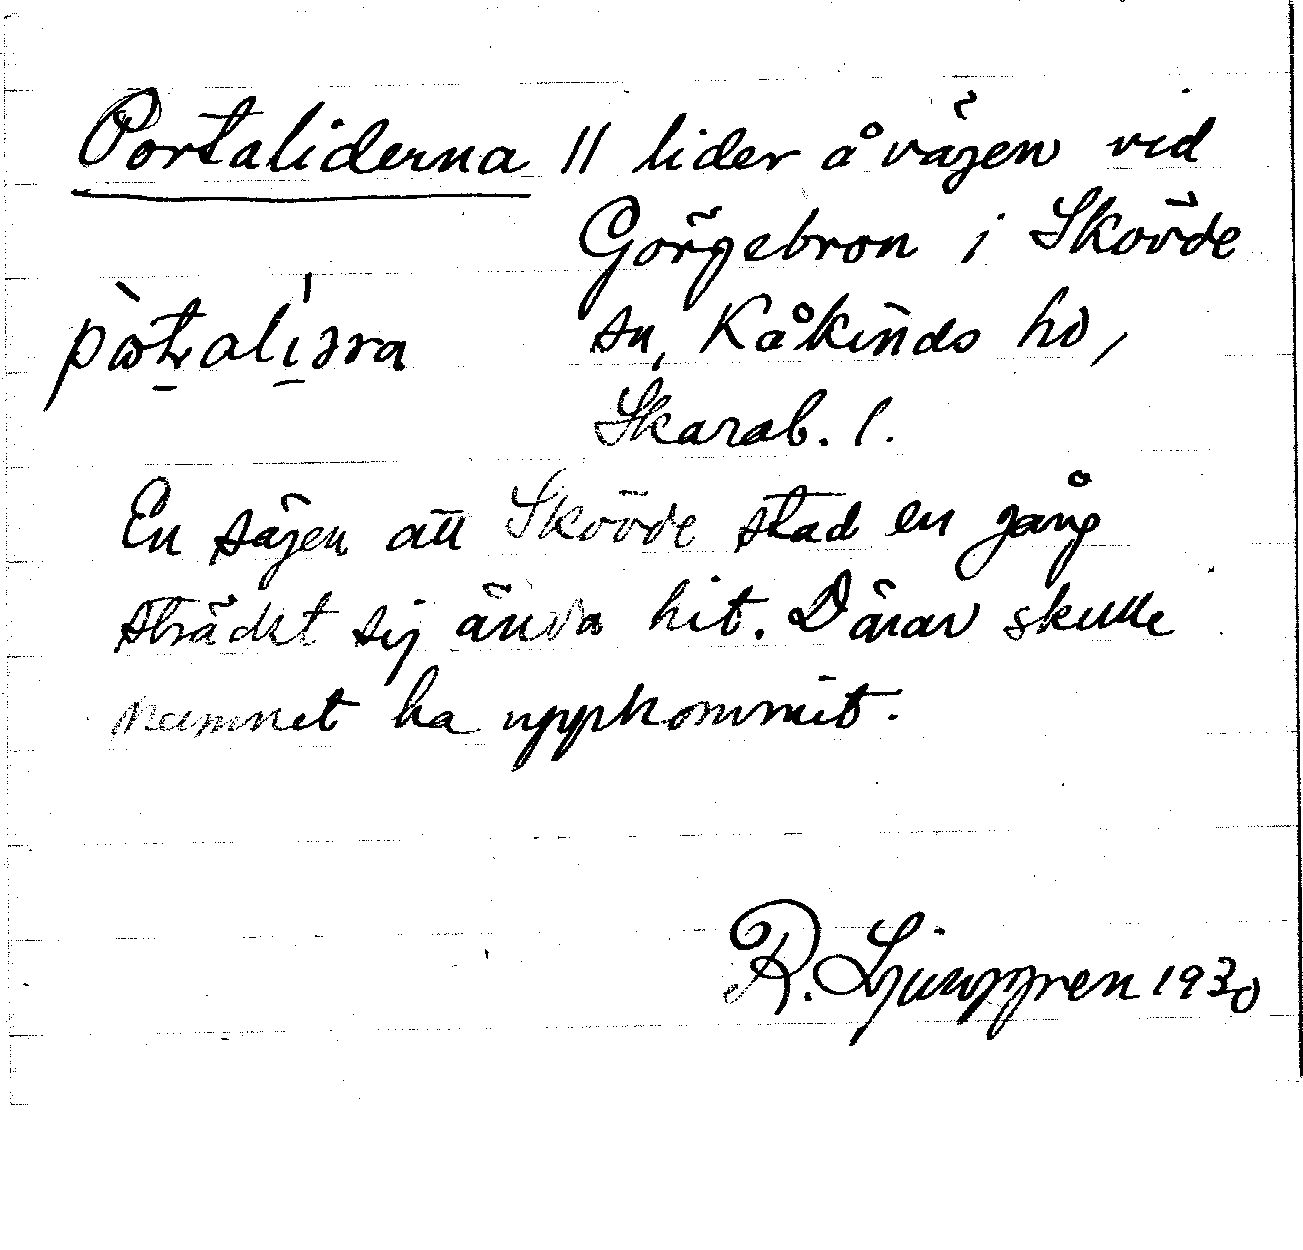 Portaliderna || lider å vägen vid
Görgebron i Skövde
sn, Kåkinds hd,
Skarab. l.
En sägen att Skövde stad en gång
sträckt sig ända hit. Därav skulle
namnet ha uppkommit.
R. Ljunggren 1930